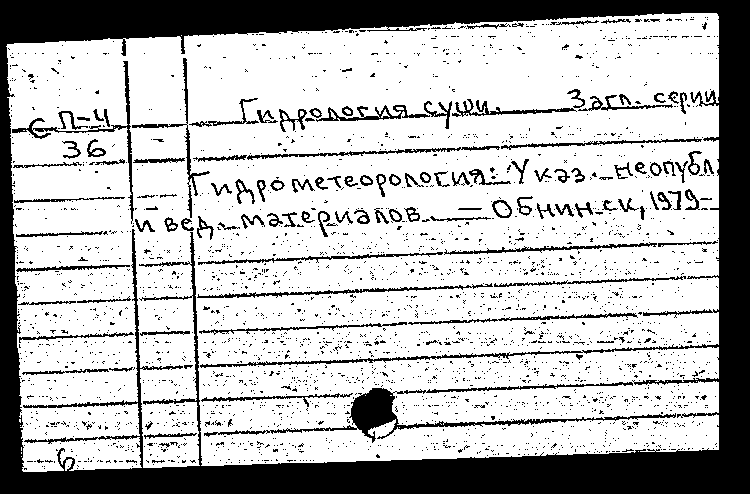 С П-4 Гидрология суши. Загл. серии
36
Гидрометеорология: Указ. неопубл.
и вед. материалов. — Обнинск, 1979-
6